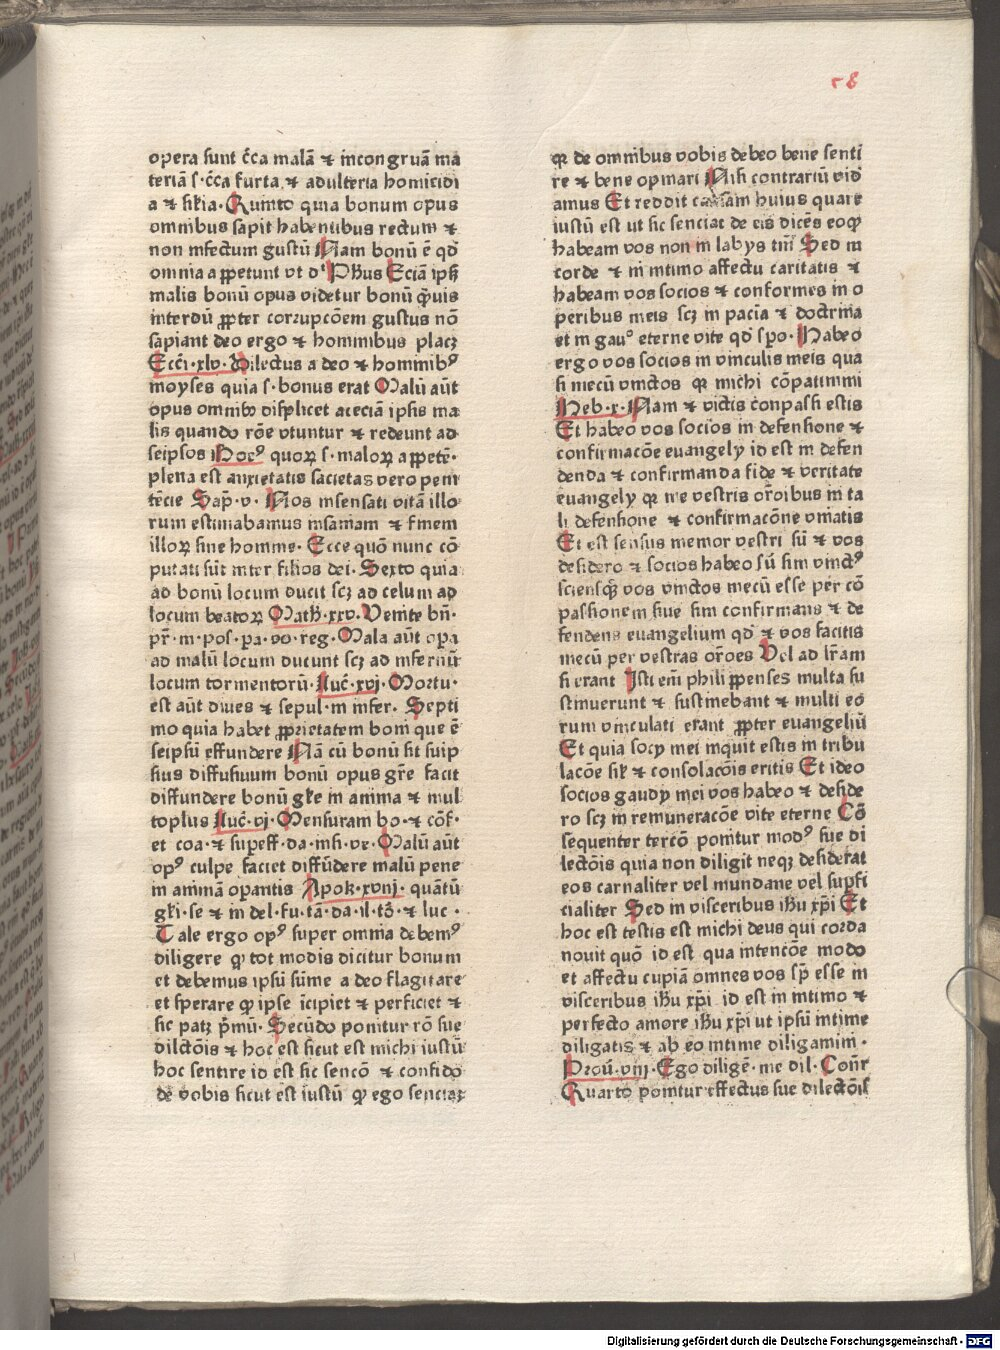 58
opera sunt c̄ca malā ⁊ incongruā ma
teriā s·c̄ca furta ⁊ adulteria homicidi
a ⁊ sil̄ia· Quinto quia bonum opus
omnibus sapit habentibus rectum ⁊
non infectum gustū Nam bonū ē qd̄
omnia appetunt vt d' Ph̄us Eciā ipis
malis bonū opus videtur bonū q̄uis
interdū ꝓpter corrupcōem gustus nō
sapiant deo ergo ⁊ hominibus placꝫ
Ecci̇·xlv· Dilectus a deo ⁊ hominibꝰ
moyses quia s·bonus erat Malū aūt
opus omnibꝫ displicet aceciā ipsis ma
lis quando rōe vtuntur ⁊ redeunt ad
seipsos Boeꝰ quoꝝ s·maloꝝ appetē·
plena est anxietatis sacietas vero peni
tēcie Sap̄·v· Nos insensati vitā illo
rum estimabamus insaniam ⁊ finem
illoꝝ sine honine· Ecce quō nunc cō
putati sūt inter filios dei· Sexto quia
ad bonū locum ducit scꝫ ad celum ad
locum beatoꝝ Math̄·xxv· Venite bn̄·
pr̄·m·pos·pa·vo·reg· Mala aūt opa
ad malū locum ducunt scꝫ ad infernū
locum tormentorū· Luc̄·xvj· Mortu·
est aūt diues ⁊ sepul·in infer· Septi
mo quia habet ꝓprietatem boni que ē
seipsū effundere Nā cū bonū sit suip
sius diffusiuum bonū opus gr̄e facit
diffundere bonū gl̄ie in anima ⁊ mul
toplus Luc̄·vj· Mensuram bo·⁊ cōf·
et coa·⁊ supeff·da·in si·ve· Malū aūt
opꝰ culpe faciet diffūdere malū pene
in animā oꝑantis Apok·xviij· quātū
gl̄i·se ⁊ in del·fu·tā·da·il·tō·⁊ luc·
Tale ergo opꝰ super omnia debemꝰ
diligere ꝙ tot modis dicitur bonum
et debemus ipsū sūme a deo flagitare
et sperare ꝙ ipse īcipiet ⁊ perficiet ⁊
sic patꝫ p̄mū· Secūdo ponitur rō sue
dilctōis ⁊ hoc est sicut est michi iustū
hoc sentire id est sic sencō ⁊ confido
de vobis sicut est iustū ꝙ ego senciaꝫ
ꝙ de omnibus vobis debeo bene senti
re ⁊ bene opinari Nisi contrariū vid
amus Et reddit causam huius quare
iustū est ut sic senciat de eis dicēs eoꝙ
habeam vos non in labijs tm̄ Sed in
corde ⁊ in intimo affectu caritatis ⁊
habeam vos socios ⁊ conformes in o
peribus meis scꝫ in paciā ⁊ doctrina
et in gauᵒ eterne vite qd̄ sp̄o· Habeo
ergo vos socios in vinculis meis qua
si mecū vinctos ꝙ michi cōpatimini
Heb·x· Nam ⁊ victis conpassi estis
Et habeo vos socios in defensione ⁊
confirmacōe euangely id est in defen
denda ⁊ confirmanda fide ⁊ veritate
euangely ꝙ me vestris or̄oibus in ta
li defensione ⁊ confirmacōne vniatis
Et est sensus memor vestri sū ⁊ vos
desidero ⁊ socios habeo sū sim vinctꝰ
sciensꝙ vos vinctos mecū esse per cō
passionem siue sim confirmans ⁊ de
fendens euangelium qd̄ ⁊ vos facitis
mecū per vestras or̄oes Vel ad lr̄am
si erant Isti eni̅ philippenses multa su
stinuerunt ⁊ sustinebant ⁊ multi eo
rum vinculati erant ꝓpter euangeliū
Et quia socy mei inquit estis in tribu
lacōe sil̄r ⁊ consolacōis eritis Et ideo
socios gaudy mei vos habeo ⁊ deside
ro scꝫ in remuneracōe vite eterne Cō
sequenter tercō ponitur modꝰ sue di
lectōis quia non diligit neqꝫ desiderat
eos carnaliter vel mundane vel supfi
cialiter Sed in visceribus ih̄u xp̄i Et
hoc est testis est michi deus qui corda
nouit quō id est qua intencōe modo
et affectu cupiā omnes vos sp̄ esse in
visceribus ih̄u xp̄i id est in intimo ⁊
perfecto amore ih̄u xp̄i ut ipsū intime
diligatis ⁊ ab eo intime diligamini·
Prou̅·viij· Ego diligē·me dil· Con̄r
Quarto ponitur effectus sue dilectōis
Digitalisierung gefördert durch die Deutsche Forschungsgemeinschaft - DFG